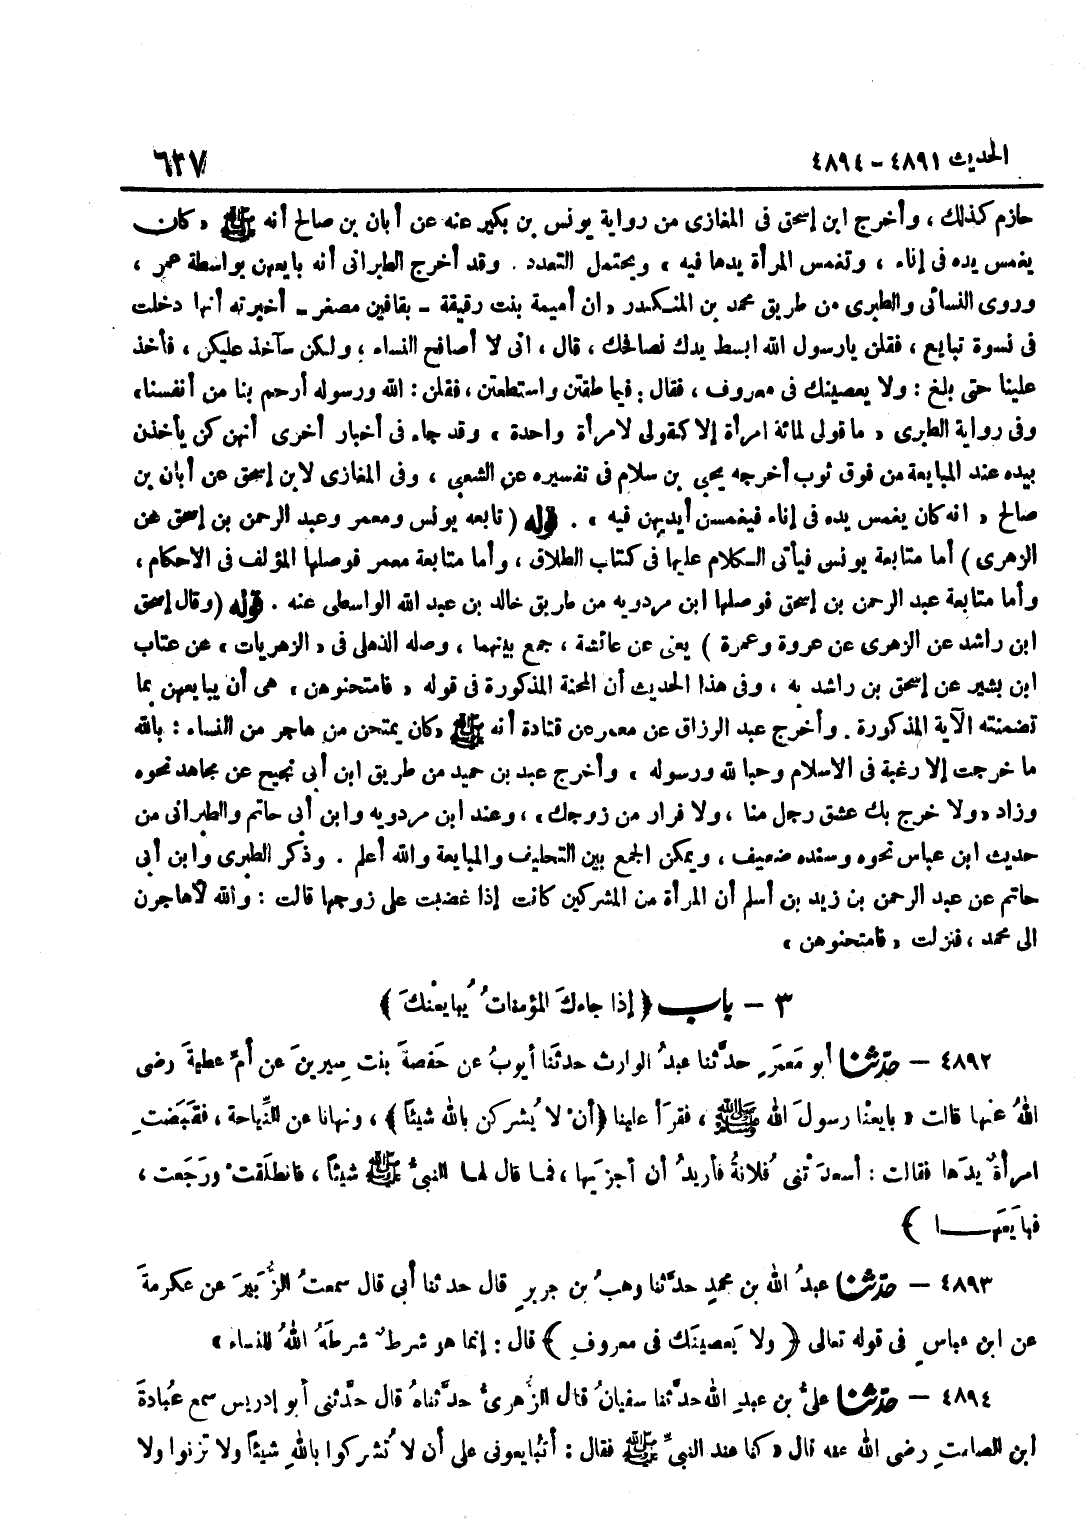 الحديث ٤٨٩١ - ٤٨٩٤ ٦٣٧
حازم كذلك ، وأخرج ابن إسحق فى المغازى من رواية يونس بن بكير عنه عن أبان بن صالح أنه ﷺ « كان
يغمس يده فى إناء ، وتغمس المرأة يدها فيه » ويحتمل التعدد . وقد أخرج الطبرانى أنه بايعهن بواسطة عمر ،
وروى النسائى والطبرى من طريق محمد بن المنكدر « ان أميمة بنت رقيقة - بقافين مصغر - أخبرته أنها دخلت
فى نسوة تبايع ، فقلن يارسول الله ابسط يدك نصافحك ، قال ، انى لا أصافح النساء ؛ ولكن سآخذ عليكن ، فأخذ
علينا حتى بلغ : ولا يعصينك فى معروف ، فقال : فيما طقتن واستطعتن ، فقلن : الله ورسوله أرحم بنا من أنفسنا»
وفى رواية الطبرى « ما قولى لمائة امرأة إلا كقولى لامرأة واحدة » وقد جاء فى أخبار أخرى أنهن كن يأخذن
بيده عند المبايعة من فوق ثوب أخرجه يحيى بن سلام فى تفسيره عن الشعبى ، وفى المغازى لابن إسحق عن أبان بن
صالح « انه كان يغمس يده فى إناء فيغمسن أيديهن فيه » . قوله ( تابعه يونس ومعمر وعبد الرحمن بن إسحق عن
الزهرى ) أما متابعة يونس فيأتى الكلام عليها فى كتاب الطلاق ، وأما متابعة معمر فوصلها المؤلف فى الاحكام ،
وأما متابعة عبد الرحمن بن إسحق فوصلها ابن مردويه من طريق خالد بن عبد الله الواسطى عنه . قوله (وقال إسحق
ابن راشد عن الزهرى عن عروة وعمرة ) يعنى عن عائشة ، جمع بينهما ، وصله الذهلى فى « الزهريات » عن عتاب
ابن بشير عن إسحق بن راشد به ، وفى هذا الحديث أن المحنة المذكورة فى قوله « فامتحنوهن » هى أن يبايعهن بما
تضمنته الآية المذكورة . وأخرج عبد الرزاق عن معمر عن قتادة أنه ﷺ «كان يمتحن من هاجر من النساء : بالله
ما خرجت إلا رغبة فى الاسلام وحبا لله ورسوله » وأخرج عبد بن حميد من طريق ابن أبى نجيح عن مجاهد نحوه
وزاد «ولا خرج بك عشق رجل منا ، ولا فرار من زوجك» ، وعند ابن مردويه وابن أبى حاتم والطبرانى من
حديث ابن عباس نحوه وسنده ضعيف ، ويمكن الجمع بين التحليف والمبايعة والله أعلم . وذكر الطبرى وابن أبى
حاتم عن عبد الرحمن بن زيد بن أسلم أن المرأة من المشركين كانت إذا غضبت على زوجها قالت : والله لأهاجرن
الى محمد ، فنزلت « فامتحنوهن »
٣ - باب ﴿ إذا جاءكَ المؤمناتُ يُبايعْنكَ ﴾
٤٨٩٢ - حدّثنا أبو مَعمَرٍ حدَّثنا عبدُ الوارث حدثنَا أيوبُ عن حَفصةَ بنت سِيرينَ عن أمِّ عطيةَ رضى
اللهُ عنها قالت « بايعْنا رسولَ الله ﷺ ، فقرَأ علينا ﴿أنْ لا يُشركن بالله شيئاً ﴾ ، ونهانا عن النِّياحة ، فقَبَضَتِ
امرأةٌ يدَها فقالت : أسعدَتْنى فُلانةُ فأريدُ أن أجزيَها ، فما قال لها النبىُّ ﷺ شيئاً ، فانطلَقتْ ورَجَعت ،
فبايَعَها ﴾
٤٨٩٣ - حدّثنا عبدُ الله بن محمدٍ حدَّثنا وهبُ بن جريرٍ قال حدثنا أبى قال سمعتُ الزُّبَيرَ عن عكرمةَ
عن ابن عباسٍ فى قوله تعالى ﴿ ولا يَعصينَك فى معروفٍ ﴾ قال : إنما هو شرطٌ شرطَهُ اللهُ للنساء »
٤٨٩٤ - حدّثنا علىُّ بن عبدِ الله حدَّثنا سفيانُ قال الزُّهرىُّ حدَّثناهُ قال حدَّثنى أبو إدريس سمع عُبادةَ
ابن الصامتِ رضى الله عنه قال « كنا عند النبىِّ ﷺ فقال : أتُبايعونى على أن لا تُشركوا باللهِ شيئاً ولا تزنوا ولا